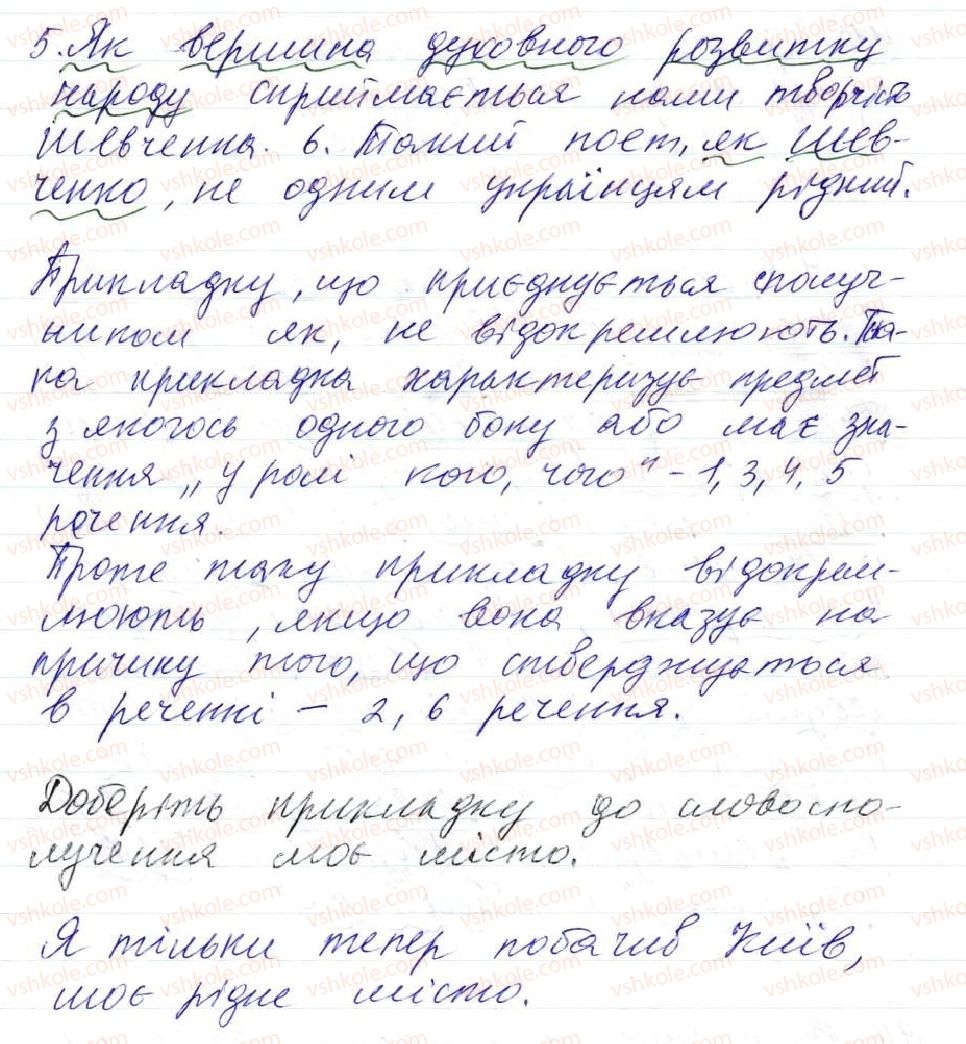 5. Як вершина духовного розвитку
народу сприймається нами творчість
Шевченка. 6. Такий поет, як Шев-
ченко, не одним українцям рідний.
Прикладку, що приєднується сполуч-
ником як, не відокремлюють. Та-
ка прикладка характеризує предмет
з якогось одного боку або має зна-
чення „у ролі кого, чого" - 1, 3, 4, 5
речення.
Проте таку прикладку відокрем-
люють, якщо вона вказує на
причину того, що стверджується
в реченні - 2, 6 речення.
Доберіть прикладку до словоспо-
лучення моє місто.
Я тільки тепер побачив Київ,
моє рідне місто.